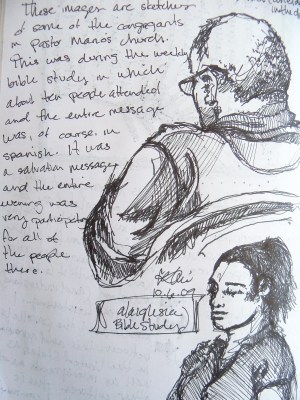 These images are sketches
of some of the congregants
in Pastor Mario's church.
This was during the weekly
bible study in which
about ten people attended
and the entire message
was, of course, in
spanish. It was
a salvation message
and the entire
evening was
very participatory
for all of
the people
there.
10.6.09
a la iglesia
Bible Study